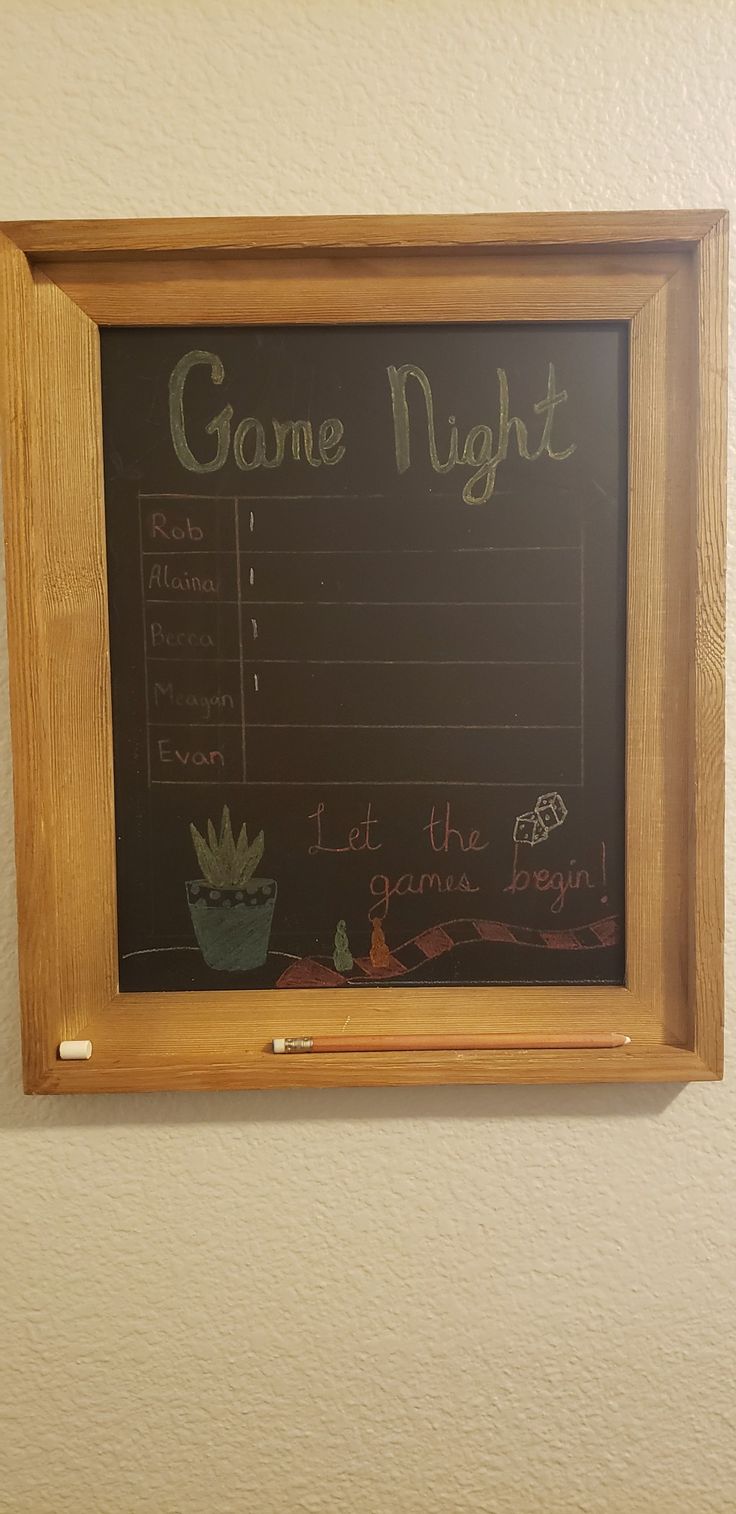 Game Night
Rob |
Alaina |
Becca |
Meagan |
Evan
Let the
games begin!